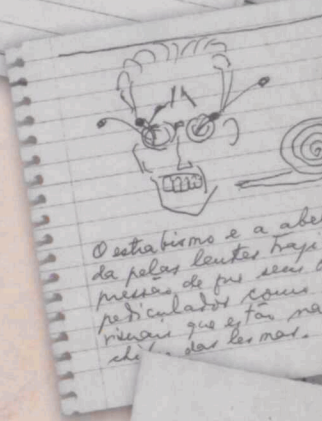 O estrabismo e a aber
da pelas lentes
pressão de que seus o
pediculados como
visuais que estão na
das lesmas.